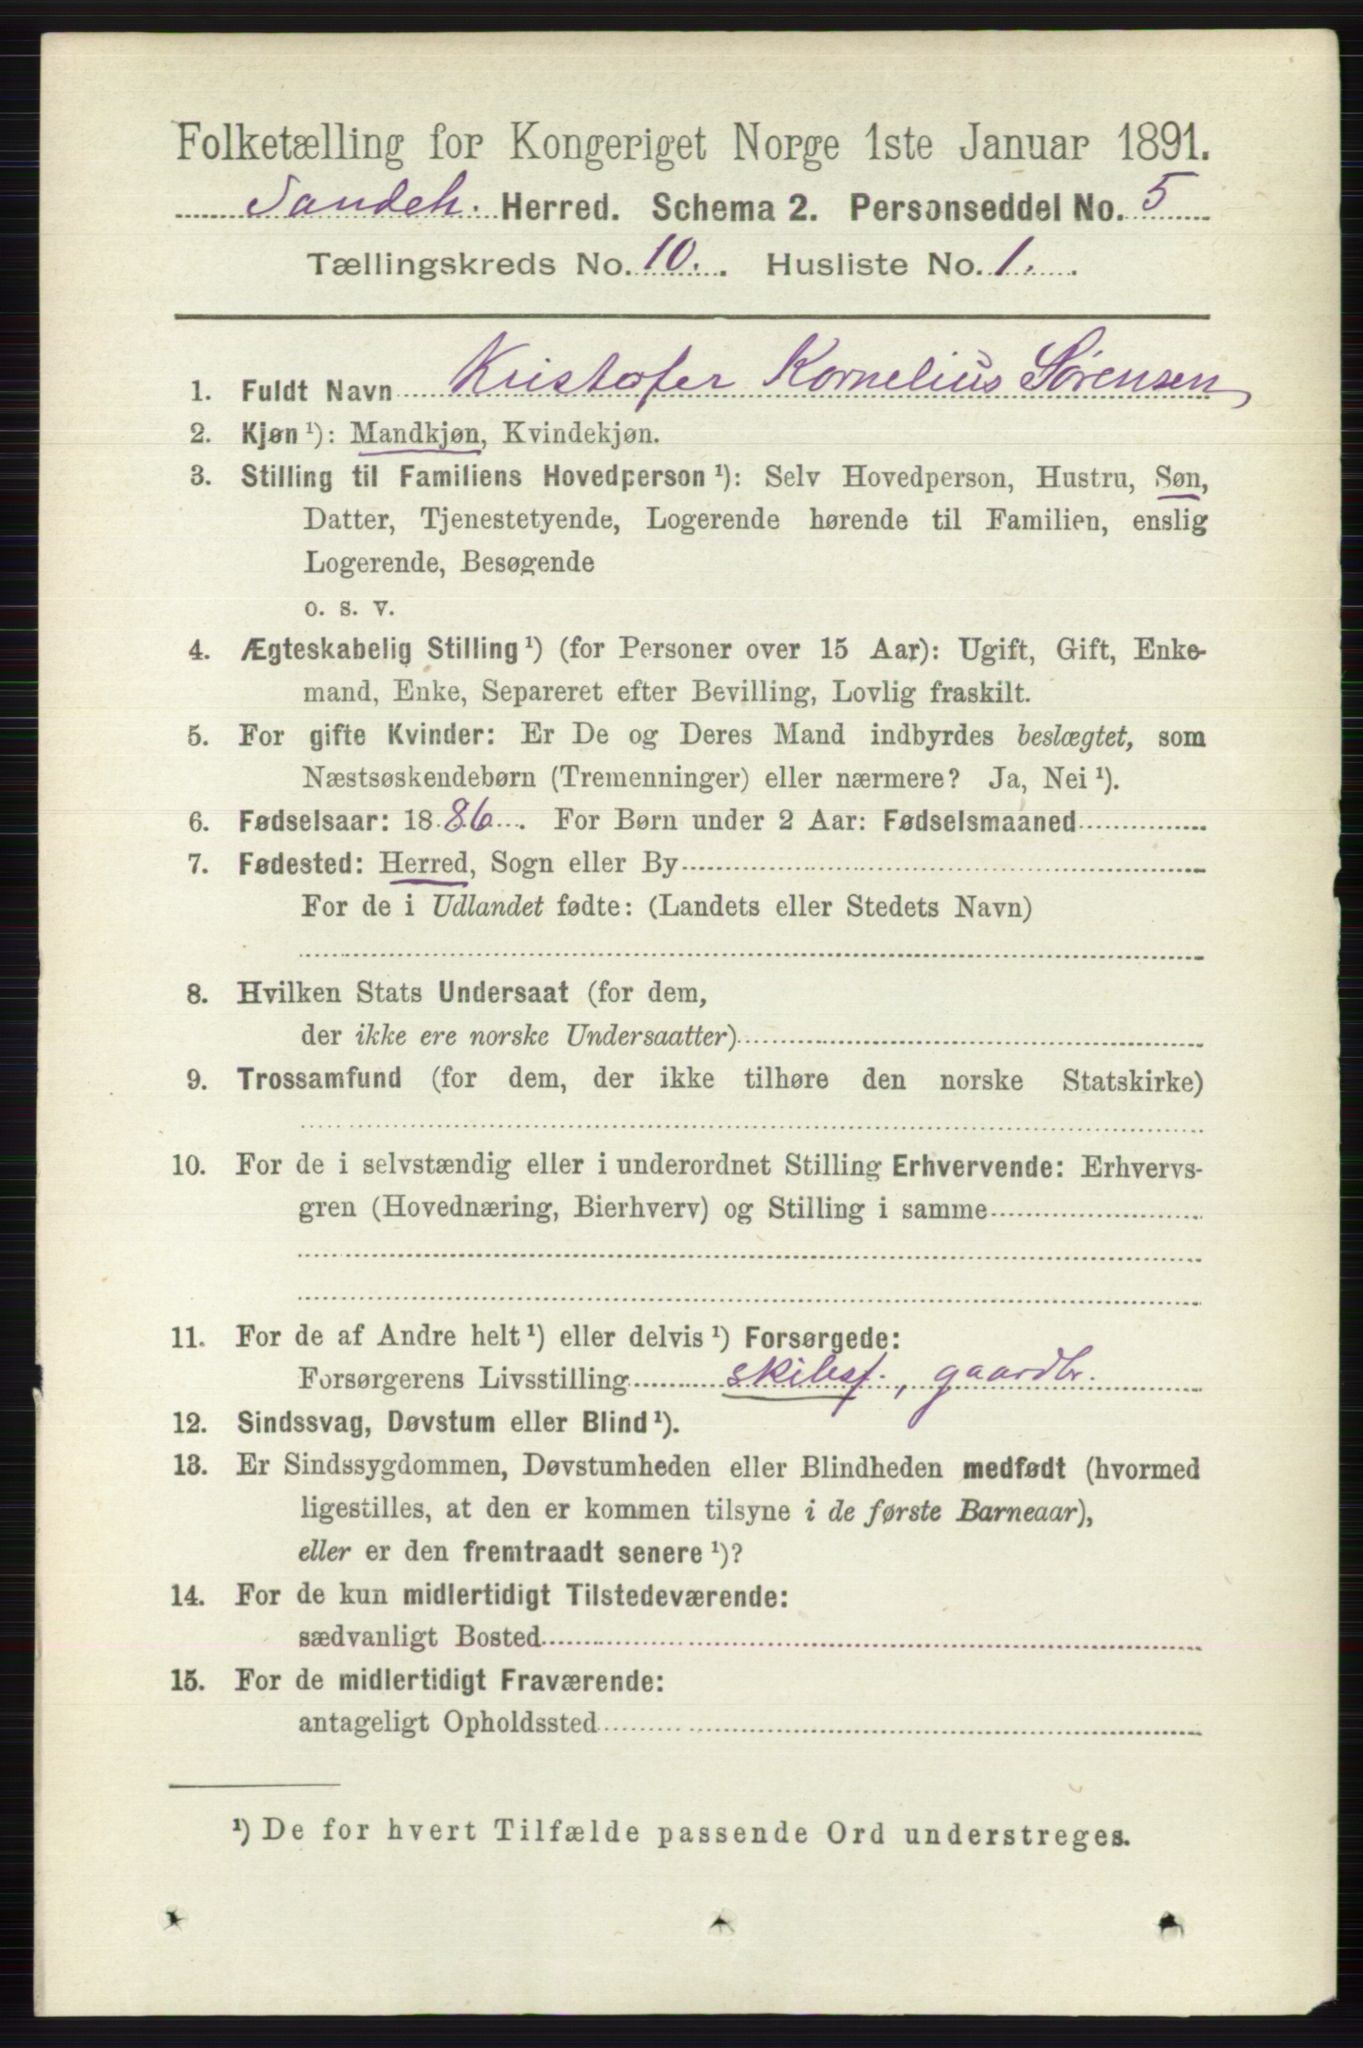 Folketælling for Kongeriget Norge 1ste Januar 1891.
Sandeh. Herred. Schema 2. Personseddel No. 5
Tællingskreds No. 10. Husliste No. 1.
1. Fuldt Navn Kristofer Kornelius Sørensen
2. Kjøn ¹): Mandkjøn, Kvindekjøn.
3. Stilling til Familiens Hovedperson ¹): Selv Hovedperson, Hustru, Søn,
Datter, Tjenestetyende, Logerende hørende til Familien, enslig
Logerende, Besøgende
o. s. v.
4. Ægteskabelig Stilling ¹) (for Personer over 15 Aar): Ugift, Gift, Enke-
mand, Enke, Separeret efter Bevilling, Lovlig fraskilt.
5. For gifte Kvinder: Er De og Deres Mand indbyrdes beslægtet, som
Næstsøskendebørn (Tremenninger) eller nærmere? Ja, Nei ¹).
6. Fødselsaar: 1886. For Børn under 2 Aar: Fødselsmaaned
7. Fødested: Herred, Sogn eller By
For de i Udlandet fødte: (Landets eller Stedets Navn)
8. Hvilken Stats Undersaat (for dem,
der ikke ere norske Undersaatter)
9. Trossamfund (for dem, der ikke tilhøre den norske Statskirke)
10. For de i selvstændig eller i underordnet Stilling Erhvervende: Erhvervs-
gren (Hovednæring, Bierhverv) og Stilling i samme
11. For de af Andre helt ¹) eller delvis ¹) Forsørgede:
Forsørgerens Livsstilling skibsf., gaardbr.
12. Sindssvag, Døvstum eller Blind ¹).
13. Er Sindssygdommen, Døvstumheden eller Blindheden medfødt (hvormed
ligestilles, at den er kommen tilsyne i de første Barneaar),
eller er den fremtraadt senere ¹)?
14. For de kun midlertidigt Tilstedeværende:
sædvanligt Bosted
15. For de midlertidigt Fraværende:
antageligt Opholdssted
¹) De for hvert Tilfælde passende Ord understreges.